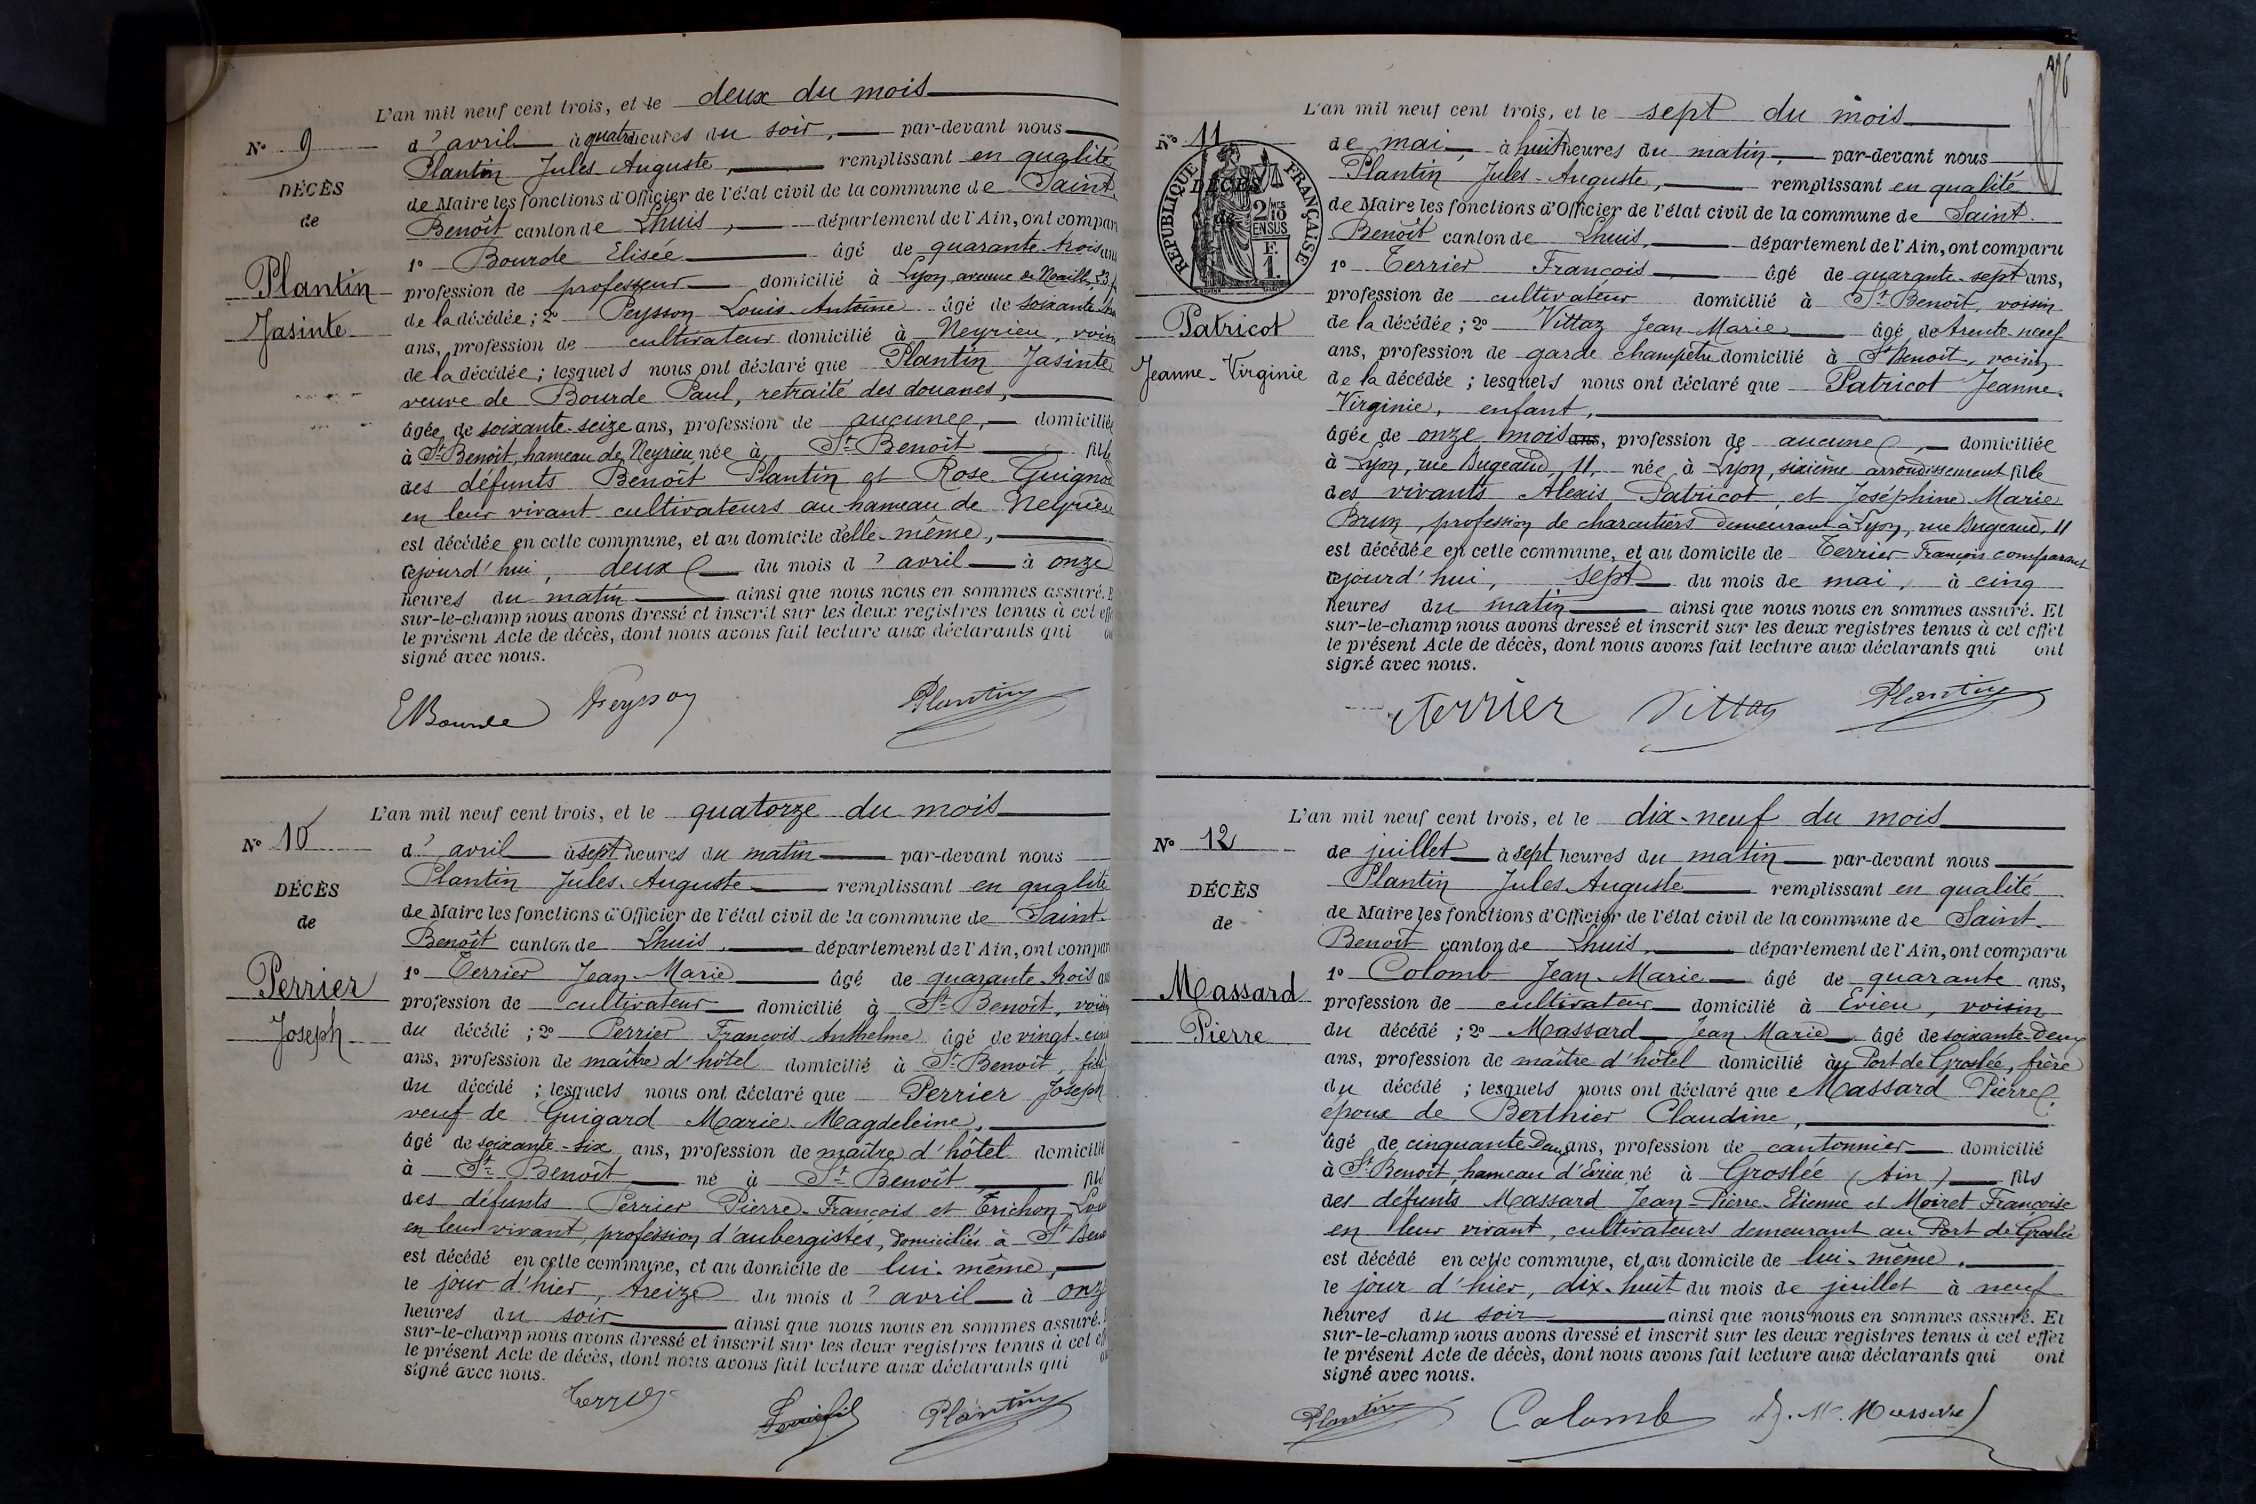 L'an mil neuf cent trois, et le deux du mois
N° 9
d'avril à quatre heures du soir, par-devant nous
Plantin Jules Auguste, remplissant en qualité
DÉCÈS
de Maire les fonctions d'Officier de l'état civil de la commune de Saint
de
Benoît canton de Lhuis, département de l'Ain, ont compar
1° Bourde Elisée âgé de quarante-trois ans
Plantin
profession de professeur domicilié à Lyon, avenue de Noailles, 53,
de la décédée; 2° Peysson Louis-Antoine âgé de soixante
Jasinte
ans, profession de cultivateur domicilié à Neyrieu, voisin
de la décédée; lesquels nous ont déclaré que Plantin Jasinte
veuve de Bourde Paul, retraité des douanes,
âgée de soixante-seize ans, profession de aucune, domiciliée
à St Benoît, hameau de Neyrieu née à St Benoît fille
des défunts Benoît Plantin et Rose Guignod
en leur vivant cultivateurs au hameau de Neyrieu
est décédée en cette commune, et au domicile d'elle-même,
cejourd'hui, deux du mois d'avril à onze
heures du matin ainsi que nous nous en sommes assuré. E
sur-le-champ nous avons dressé et inscrit sur les deux registres tenus à cet eff
le présent Acte de décès, dont nous avons fait lecture aux déclarants qui o
signé avec nous.
EBourde Peysson Plantin
L'an mil neuf cent trois, et le quatorze du mois
N° 10
d'avril à sept heures du matin par-devant nous
Plantin Jules-Auguste remplissant en qualité
DÉCÈS
de Maire les fonctions d'Officier de l'état civil de la commune de Saint-
de
Benoît canton de Lhuis, département de l'Ain, ont compar
1° Terrier Jean-Marie âgé de quarante-trois ans
Perrier
profession de cultivateur domicilié à St Benoît, voisin
Joseph
du décédé; 2° Perrier François Anthelme âgé de vingt-cinq
ans, profession de maître d'hôtel domicilié à St Benoît, fils
du décédé; lesquels nous ont déclaré que Perrier Joseph
veuf de Guigard Marie-Magdeleine,
âgé de soixante-six ans, profession de maître d'hôtel domicilié
à St Benoît né à St Benoît fils
des défunts Perrier Pierre-François et Erichon
en leur vivant, profession d'aubergistes, domiciliés à St Beno
est décédé en cette commune, et au domicile de lui-même,
le jour d'hier, treize du mois d'avril à onze
heures du soir ainsi que nous nous en sommes assuré.
sur-le-champ nous avons dressé et inscrit sur les deux registres tenus à cet
le présent Acte de décès, dont nous avons fait lecture aux déclarants qui
signé avec nous.
Terrier Plantin
L'an mil neuf cent trois, et le sept du mois
N° 11
de mai, à huit heures du matin, par-devant nous
Plantin Jules-Auguste, remplissant en qualité
DÉCÈS
de
RÉPUBLIQUE FRANÇAISE
2/10 EN SUS
F. 1
de Maire les fonctions d'Officier de l'état civil de la commune de Saint-
Benoît canton de Lhuis, département de l'Ain, ont comparu
1° Terrier François âgé de quarante-sept ans,
profession de cultivateur domicilié à St Benoît, voisin
Patricot
de la décédée; 2° Vittaz Jean-Marie âgé de trente-neuf
ans, profession de garde champêtre domicilié à St Benoît, voisin
Jeanne-Virginie
de la décédée; lesquels nous ont déclaré que Patricot Jeanne-
Virginie, enfant,
âgée de onze mois ans, profession de aucune, domiciliée
à Lyon, rue Bugeaud, 11, née à Lyon, sixième arrondissement fille
des vivants Alexis Patricot et Joséphine Marie
Brun, profession de charcutiers demeurant à Lyon, rue Bugeaud, 11
est décédée en cette commune, et au domicile de Terrier François comparant
cejourd'hui, sept du mois de mai, à cinq
heures du matin ainsi que nous nous en sommes assuré. Et
sur-le-champ nous avons dressé et inscrit sur les deux registres tenus à cet effet
le présent Acte de décès, dont nous avons fait lecture aux déclarants qui ont
signé avec nous.
Terrier Vittaz Plantin
L'an mil neuf cent trois, et le dix-neuf du mois
N° 12
de juillet à sept heures du matin par-devant nous
Plantin Jules-Auguste remplissant en qualité
DÉCÈS
de Maire les fonctions d'Officier de l'état civil de la commune de Saint-
de
Benoît canton de Lhuis, département de l'Ain, ont comparu
1° Colomb Jean-Marie âgé de quarante ans,
Massard
profession de cultivateur domicilié à Evieu, voisin
Pierre
du décédé; 2° Massard Jean Marie âgé de soixante-deux
ans, profession de maître d'hôtel domicilié au Port de Groslée, frère
du décédé; lesquels nous ont déclaré que Massard Pierre
époux de Berthier Claudine,
âgé de cinquante deux ans, profession de cantonnier domicilié
à St Benoît, hameau d'Evieu né à Groslée (Ain) fils
des défunts Massard Jean-Pierre-Etienne et Moiret Françoise
en leur vivant, cultivateurs demeurant au Port de Groslée
est décédé en cette commune, et au domicile de lui-même,
le jour d'hier, dix-huit du mois de juillet à neuf
heures du soir ainsi que nous nous en sommes assuré. Et
sur-le-champ nous avons dressé et inscrit sur les deux registres tenus à cet effet
le présent Acte de décès, dont nous avons fait lecture aux déclarants qui ont
signé avec nous.
Plantin Colomb J. M. Massard